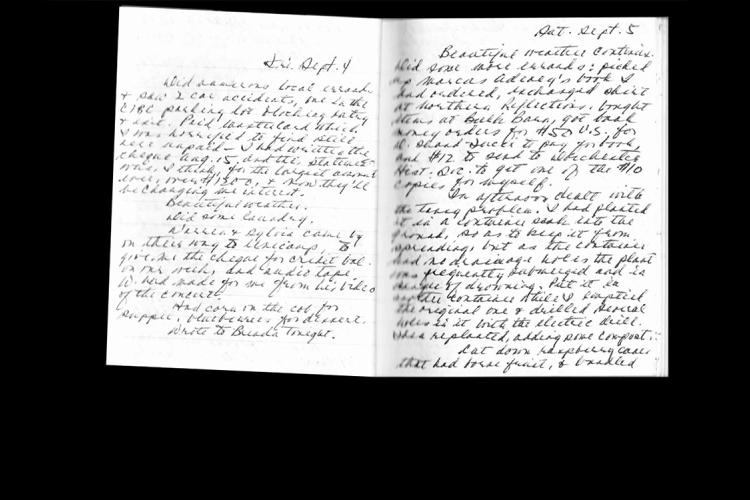 Fri. Sept. 4
Did numerous local errands
& saw 2 car accidents, one in the
CIBC parking lot blocking entry
& exit. Paid Mastercard which
I was horrified to find still
was unpaid - I had written the
cheque Aug. 15, and the statement
was, I think, for the largest amount
ever, over $1300, & now they'll
be charging me interest.
Beautiful weather.
Did some laundry.
Warren & Sylvia came by
on their way to to
give me the cheque for cricket bal.
on our and audio tape
W. had made for me from his video
of the concert.
Had corn on the cob for
supper, blueberries for dessert.
Wrote to Brenda tonight.
Sat. Sept. 5
Beautiful weather continues.
Did some more errands: picked
up Marcus Adeney's book I
had ordered, exchanged shirt
at Northern Reflections, bought
items at Bulk Barn, got bank
money orders for $50 U.S. for
to pay for book
and $12 to send to Dorchester
Hist. Soc. to get one of the $10
copies for myself.
In afternoon dealt with
the tansy problem. I had planted
it in a container sunk into the
ground, so as to keep it from
spreading, but as the container
had no drainage holes the plant
was frequently submerged and in
danger of drowning. Put it in
another container while I emptied
the original one & drilled several
holes in it with the electric drill.
Then replanted, adding some compost.
Cut down raspberry canes
that had borne fruit, & bundled